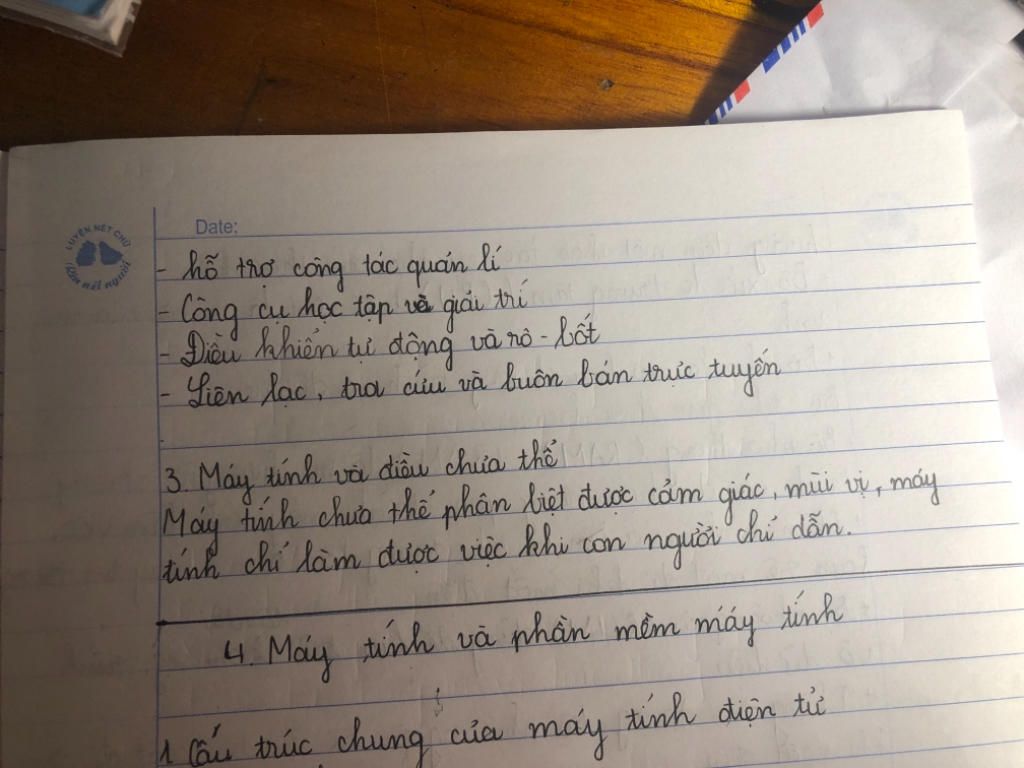 LUYỆN NÉT CHỮ
Rèn nết người
Date:
- hỗ trợ công tác quản lí
- Công cụ học tập và giải trí
- Điều khiển tự động và rô-bốt
- Liên lạc, tra cứu và buôn bán trực tuyến
3. Máy tính và điều chưa thể
Máy tính chưa thể phân biệt được cảm giác, mùi vị, máy
tính chỉ làm được việc khi con người chỉ dẫn.
4. Máy tính và phần mềm máy tính
1 Cấu trúc chung của máy tính điện tử